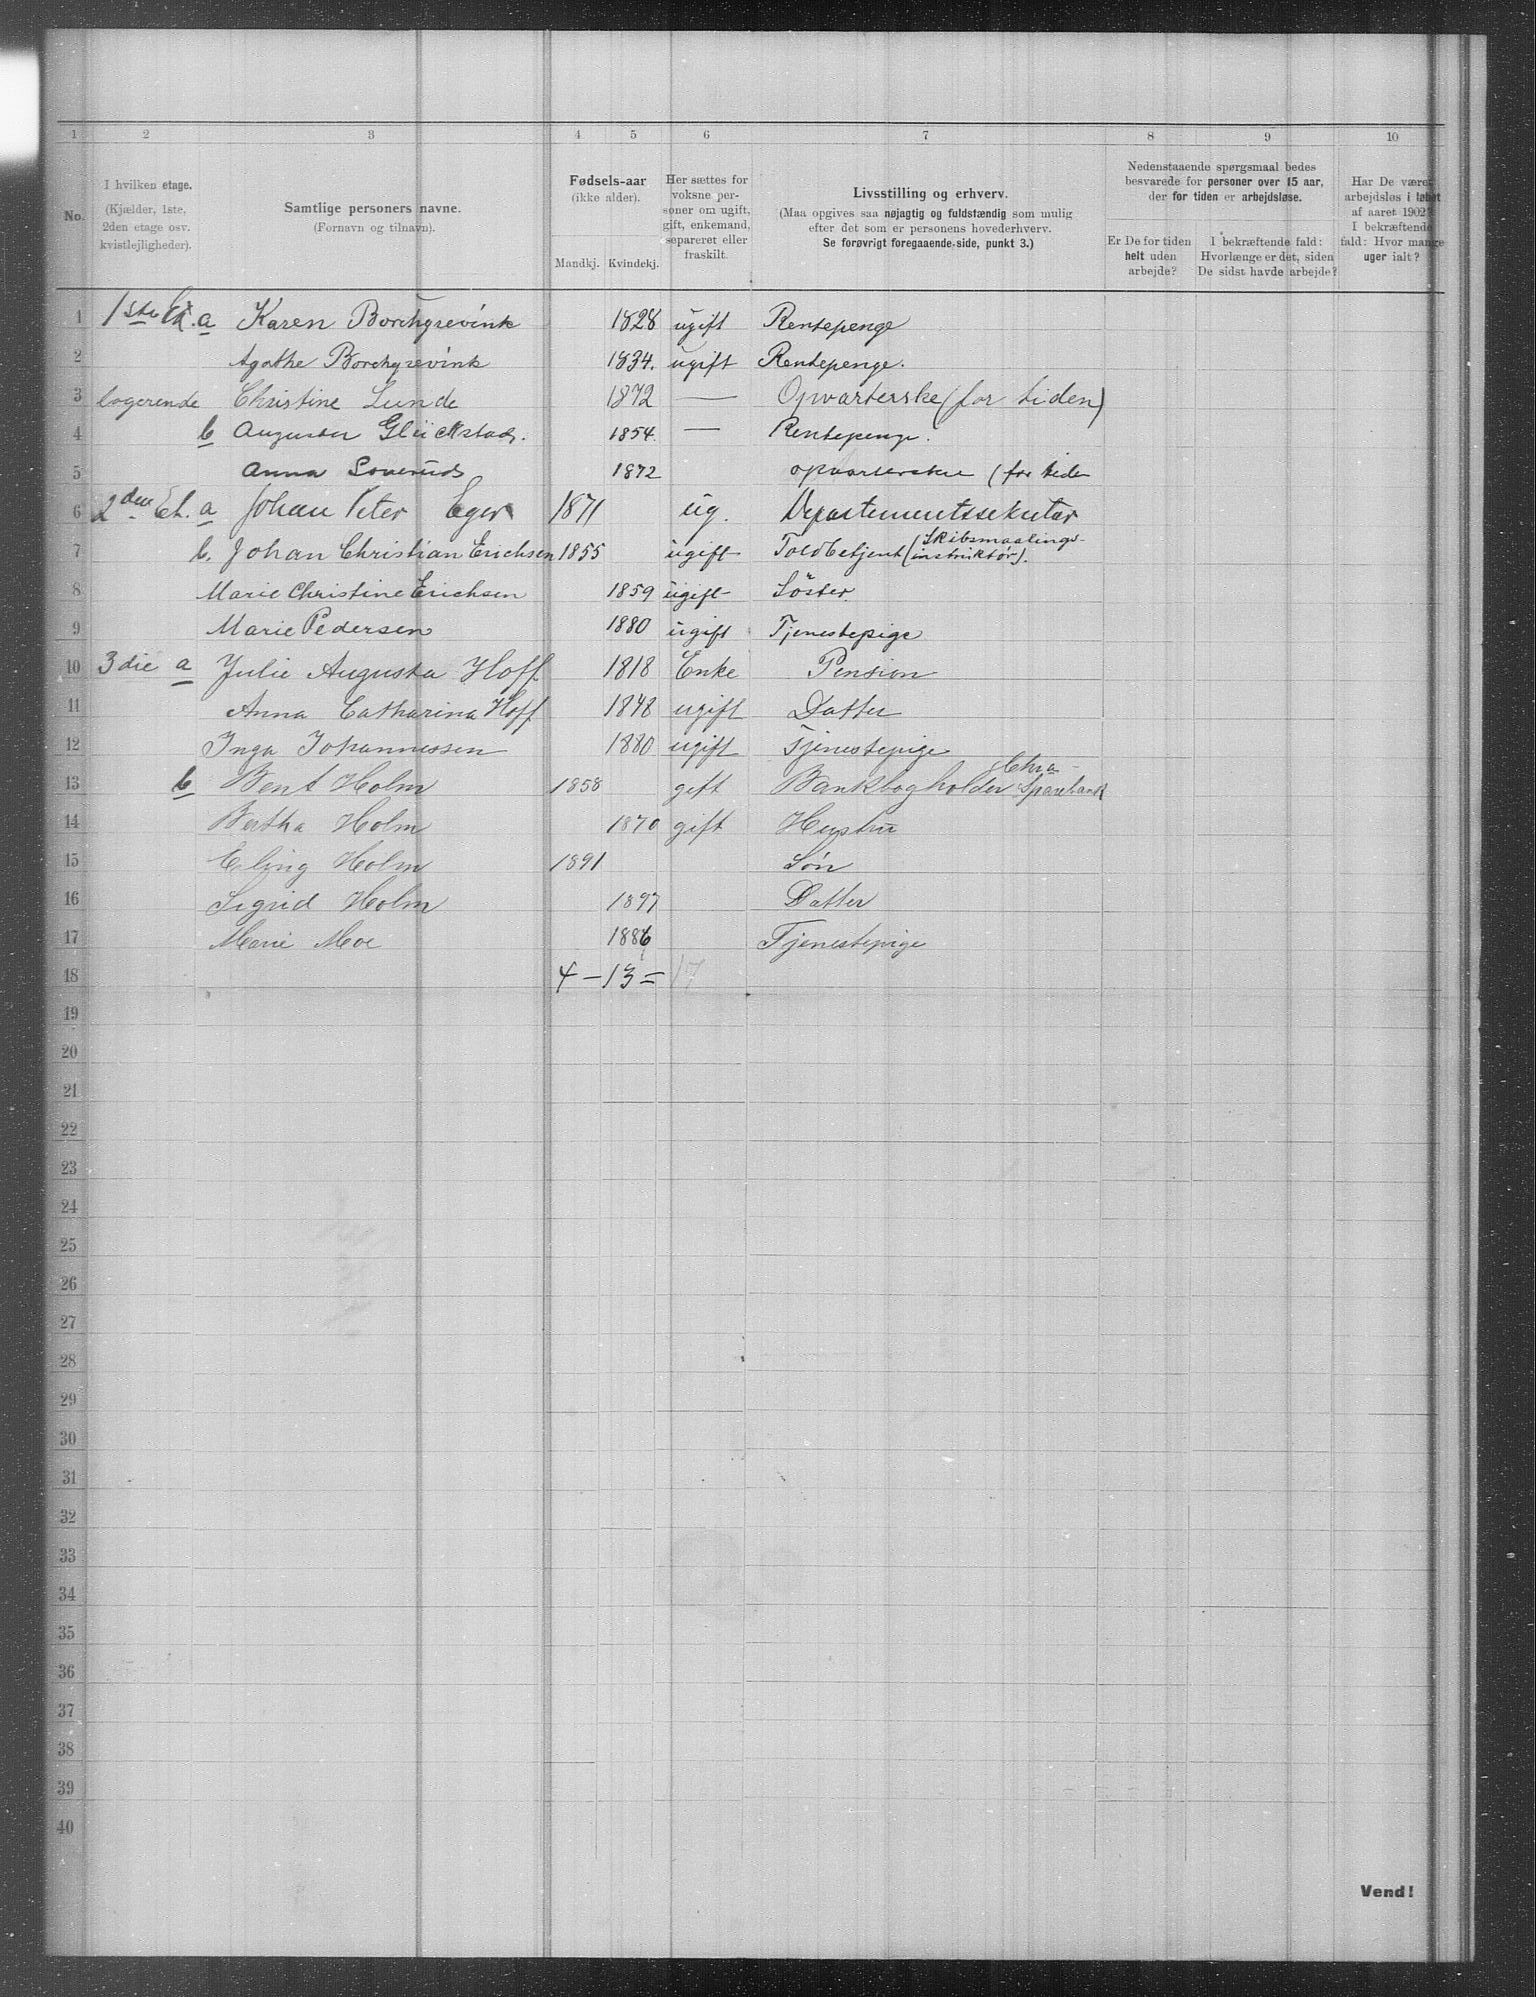 1 2 3 4 5 6 7 8 9 10
No.
I hvilken etage.
(Kjælder, 1ste,
2den etage osv.
kvistlejligheder).
Samtlige personers navne.
(Fornavn og tilnavn).
Fødsels-aar
(ikke alder).
Mandkj. Kvindekj.
Her sættes for
voksne per-
soner om ugift,
gift, enkemand,
separeret eller
fraskilt.
Livsstilling og erhverv.
(Maa opgives saa nøjagtig og fuldstændig som mulig
efter det som er personens hovederhverv.
Se forøvrigt foregaaende side, punkt 3.)
Nedenstaaende spørgsmaal bedes
besvarede for personer over 15 aar,
der for tiden er arbejdsløse.
Er De for tiden
helt uden
arbejde?
I bekræftende fald:
Hvorlænge er det, siden
De sidst havde arbejde?
Har De været
arbejdsløs i løbet
af aaret 1902?
I bekræftende
fald: Hvor mange
uger ialt?
1 1ste Et. a Karen Borchgrevink 1828 ugift Rentepenge
2 Agathe Borchgrevink 1834. ugift Rentepenge.
3 logerende Christine Lunde 1872 — Opvarterske (for tiden)
4 b Augusta Glückstad. 1854. — Rentepenge.
5 Anna 1872 opvarterske (for tiden
6 2den Et. a Johan Peter Eger 1871 ug. Departementssekretær
7 b. Johan Christian Erichsen 1855 ugift Toldbetjent (Skibsmaalings-
instruktør).
8 Marie Christine Erichsen 1859 ugift Söster.
9 Marie Pedersen 1880 ugift Tjenestepige
10 3die a Julie Augusta Hoff 1818 Enke Pension
11 Anna Catharina Hoff 1848 ugift Datter
12 Inga Johannessen 1880 ugift Tjenestepige
13 b Bent Holm 1858 gift Bankbogholder Chra Sparebank
14 Bertha Holm 1870 gift Hustru
15 Erling Holm 1891 Søn
16 Sigrid Holm 1897 Datter
17 Marie Moe 1886 Tjenestepige
18 4 – 13 = 17
19
20
21
22
23
24
25
26
27
28
29
30
31
32
33
34
35
36
37
38
39
40
Vend!